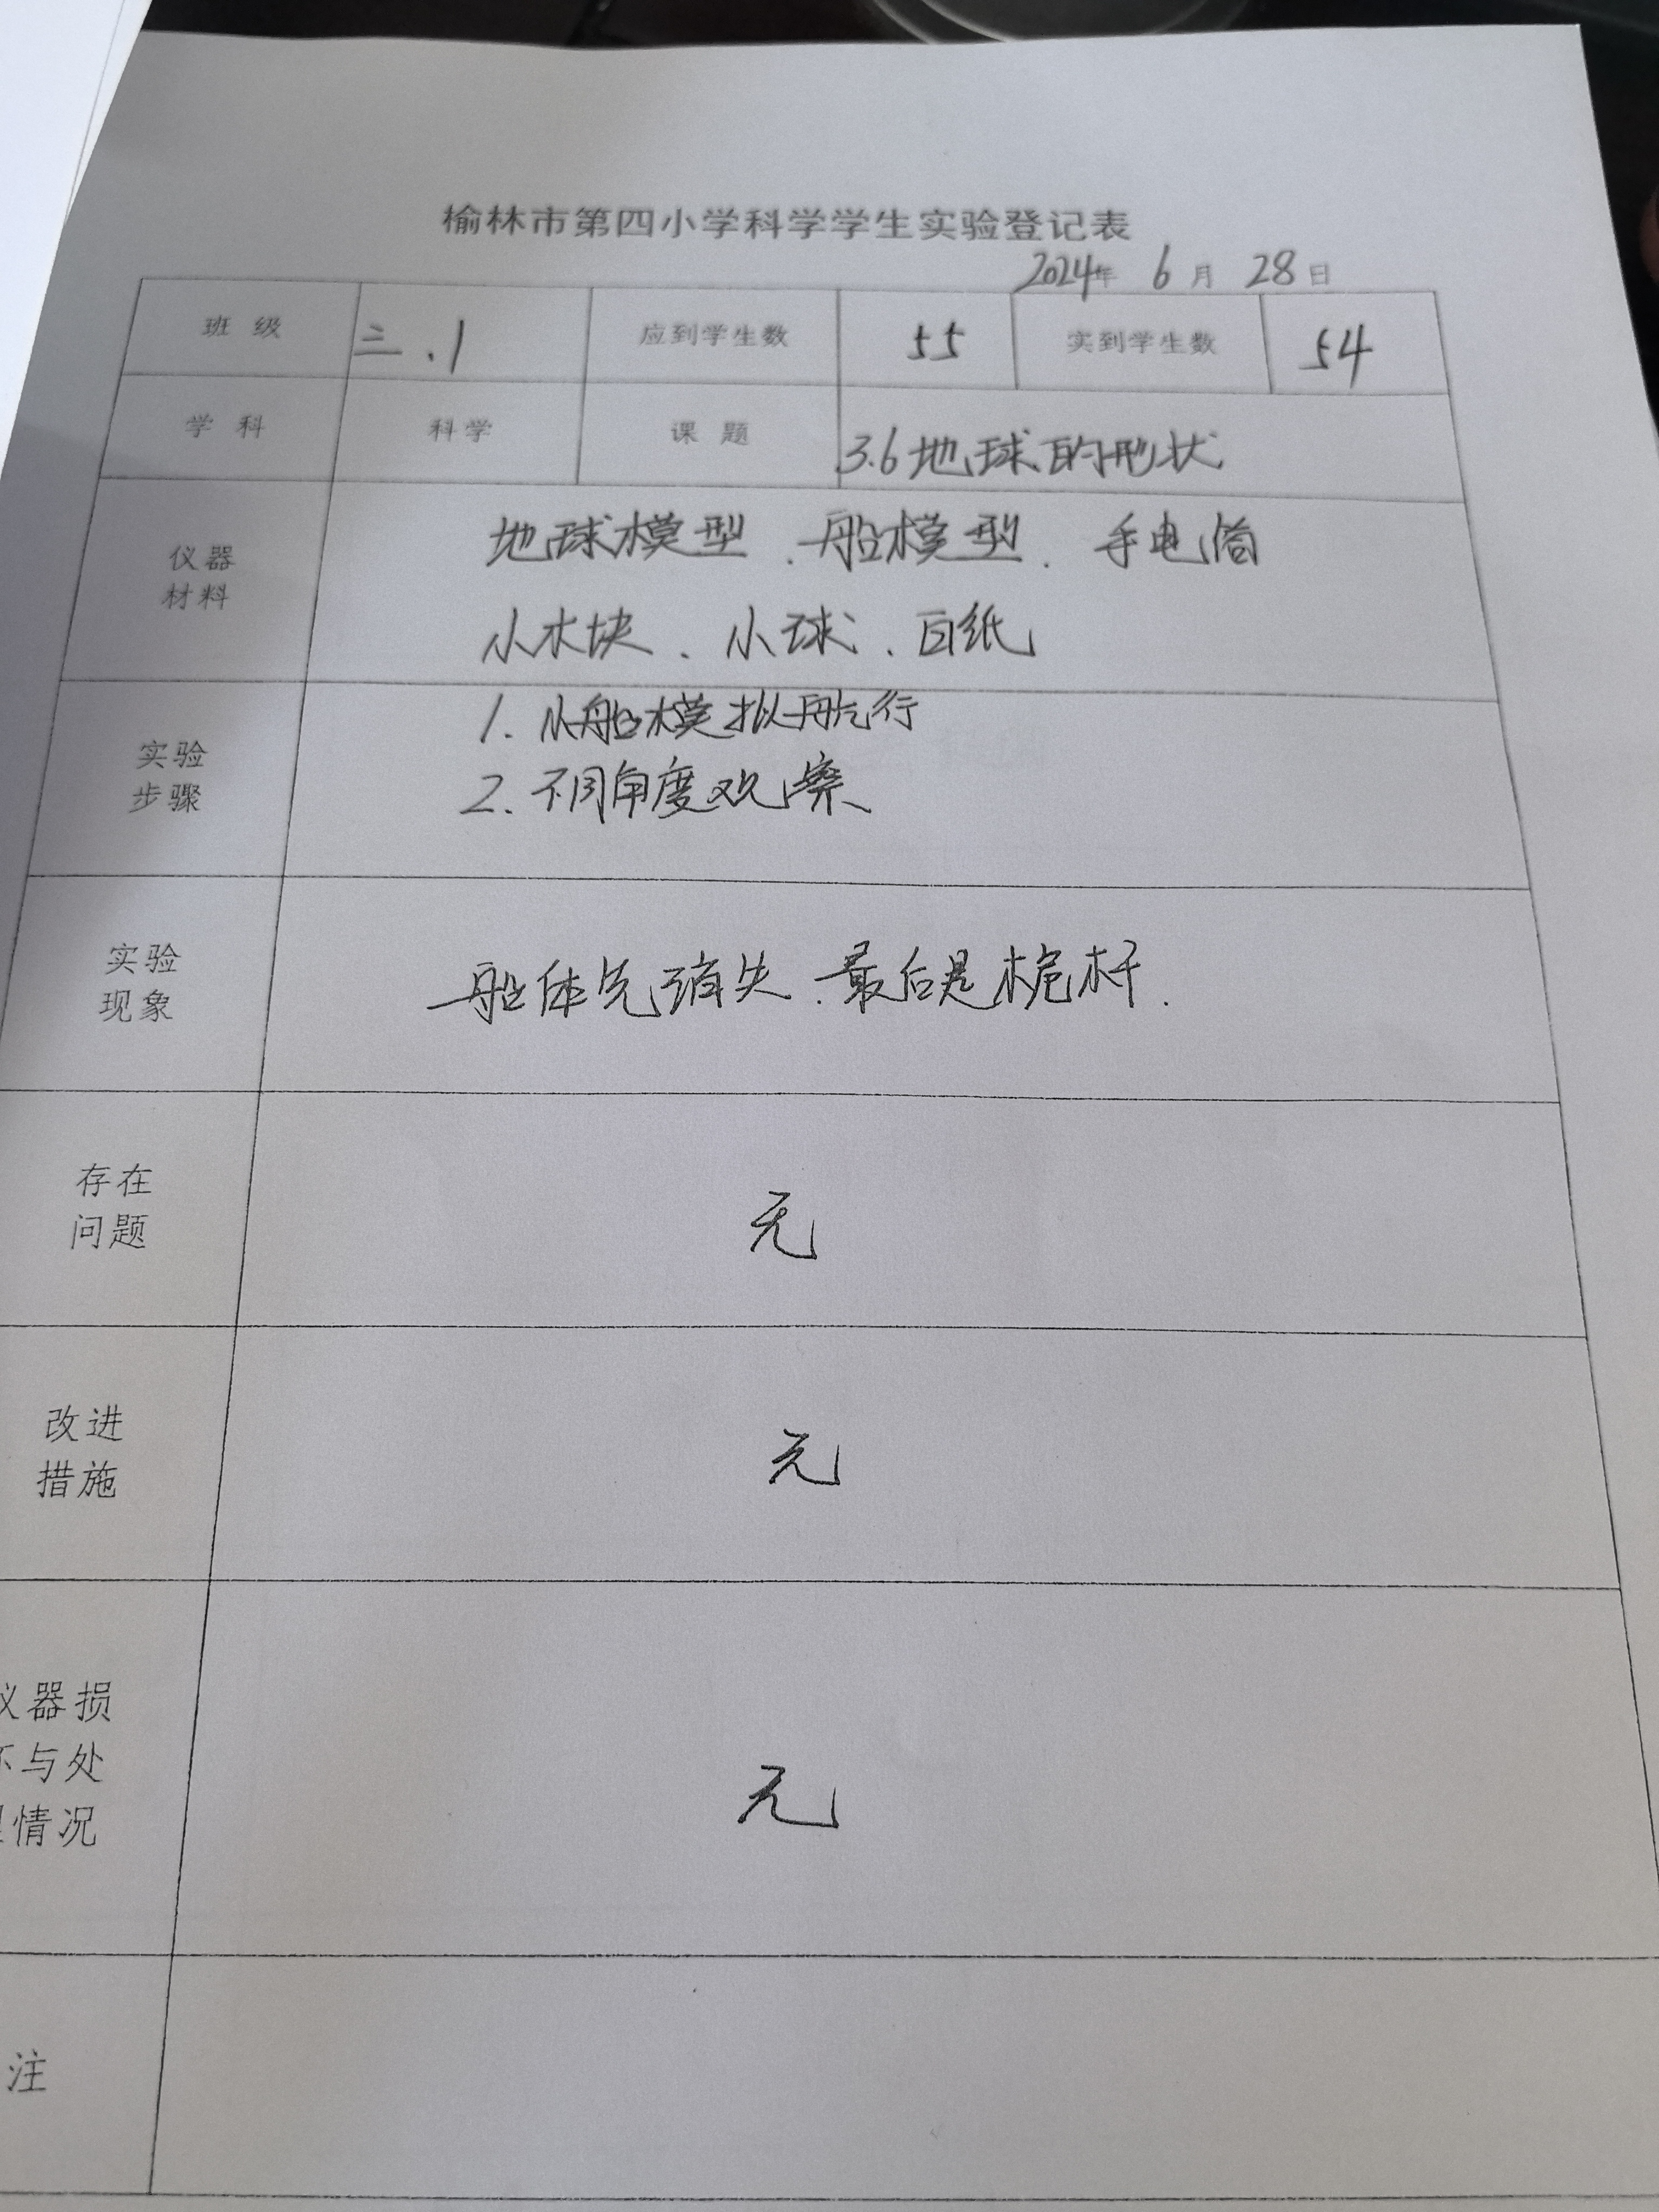 榆林市第四小学科学学生实验登记表
2024年 6月 28日
班 级 三.1 应到学生数 55 实到学生数 54
学 科 科学 课 题 3.6地球的形状
仪器
材料
地球模型、船模型、手电筒
小木块、小球、白纸
实验
步骤
1. 从船模拟航行
2. 不同角度观察
实验
现象
船体先消失、最后是桅杆.
存在
问题
无
改进
措施
无
仪器损
坏与处
理情况
无
注